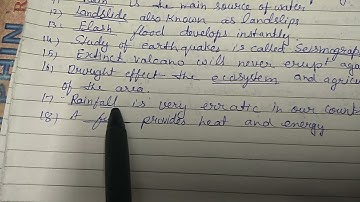 is the main source of water.
12) Landslide also known as landslips.
13) Flash flood develops instantly
14) Study of earthquakes is called Seismograp
15) Extinct volcano will never erupt aga
16) Drought effect the ecosystem and agric
of the area
17) Rainfall is very erratic in our count
18) A provides heat and energy